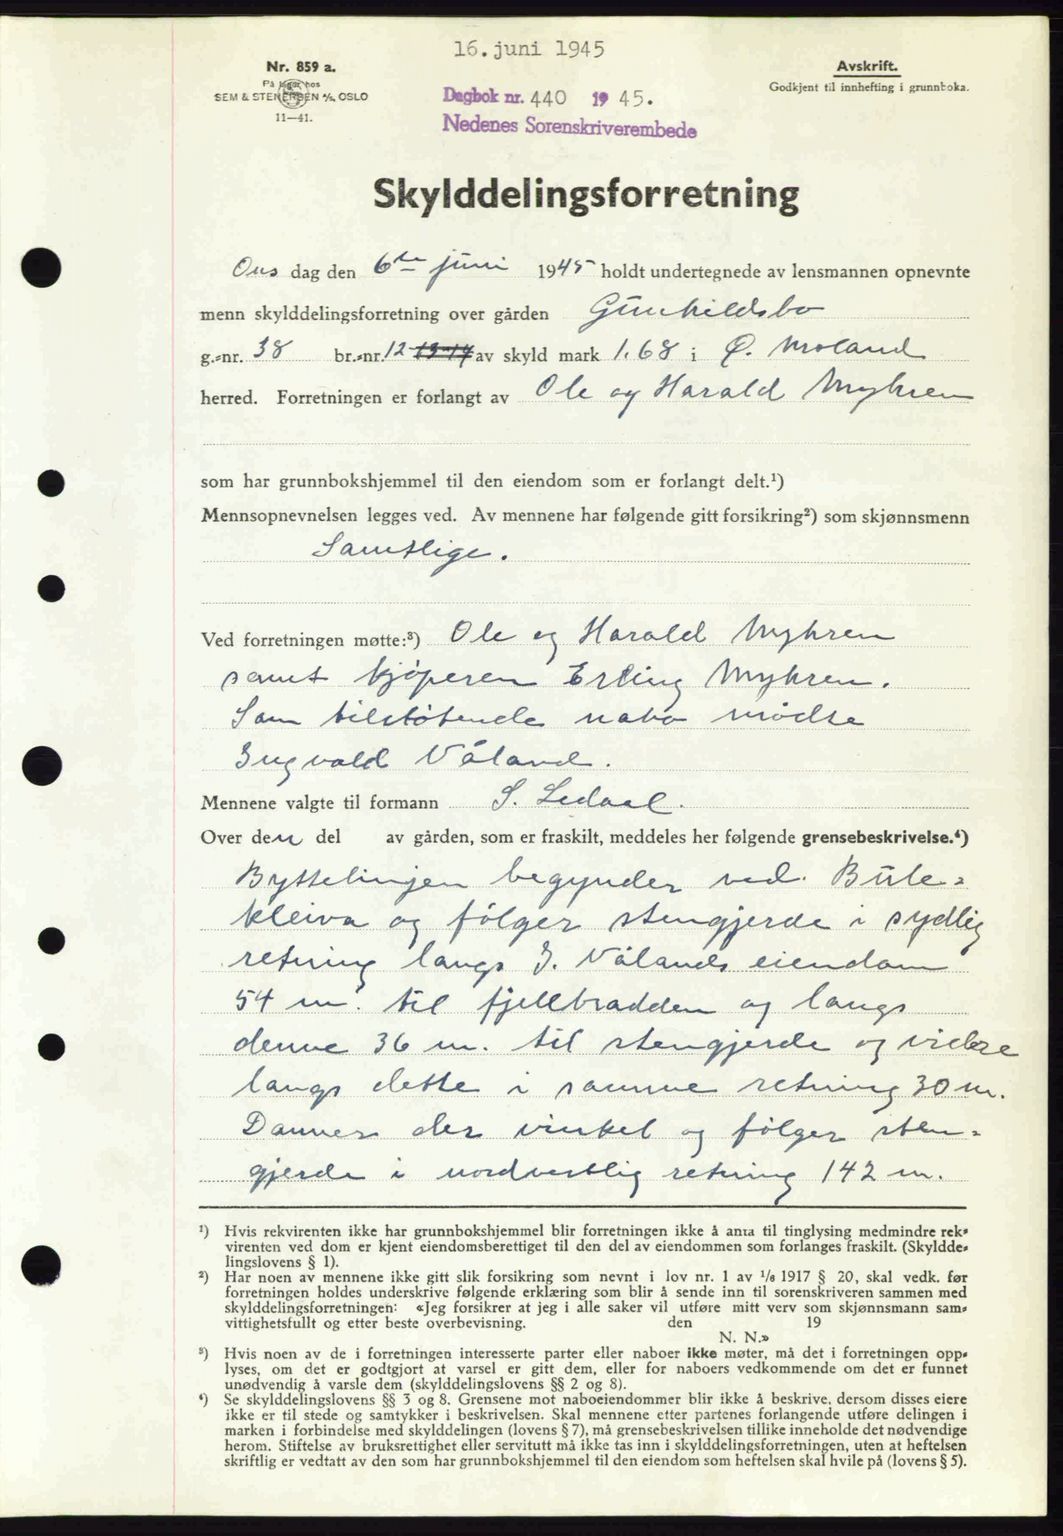 16. juni 1945
Nr. 859 a.
På lager hos
SEM & STENERSEN A/S, OSLO
11—41.
Dagbok nr. 440 1945.
Nedenes Sorenskriverembede
Avskrift.
Godkjent til innhefting i grunnboka.
Skylddelingsforretning
Ons dag den 6te juni 1945 holdt undertegnede av lensmannen opnevnte
menn skylddelingsforretning over gården Gunhildsbo
g.-nr. 38 br.-nr. 12 13-14 av skyld mark 1.68 i Ø. Moland
herred. Forretningen er forlangt av Ole og Harald Myhren
som har grunnbokshjemmel til den eiendom som er forlangt delt.¹)
Mennsopnevnelsen legges ved. Av mennene har følgende gitt forsikring²) som skjønnsmenn
Samtlige.
Ved forretningen møtte:³) Ole og Harald Myhren
samt kjøperen Erling Myhren.
Som tilstøtende nabo mødte
Ingvald Våland.
Mennene valgte til formann S. Ledaal.
Over den del av gården, som er fraskilt, meddeles her følgende grensebeskrivelse.⁴)
Byttelinjen begynder ved Bule-
kleiva og følger stengjerde i sydlig
retning langs I. Vålands eiendom
54 m. til fjellbradden og langs
denne 36 m. til stengjerde og videre
langs dette i samme retning 30 m.
Danner der vinkel og følger sten-
gjerde i nordvestlig retning 142 m.
¹) Hvis rekvirenten ikke har grunnbokshjemmel blir forretningen ikke å anta til tinglysing medmindre rek-
virenten ved dom er kjent eiendomsberettiget til den del av eiendommen som forlanges fraskilt. (Skyldde-
lingslovens § 1).
²) Har noen av mennene ikke gitt slik forsikring som nevnt i lov nr. 1 av 1/6 1917 § 20, skal vedk. før
forretningen holdes underskrive følgende erklæring som blir å sende inn til sorenskriveren sammen med
skylddelingsforretningen: «Jeg forsikrer at jeg i alle saker vil utføre mitt verv som skjønnsmann sam-
vittighetsfullt og etter beste overbevisning. den 19
N. N.»
³) Hvis noen av de i forretningen interesserte parter eller naboer ikke møter, må det i forretningen opp-
lyses, om det er godtgjort at varsel er gitt dem, eller for naboers vedkommende om det er funnet
unødvendig å varsle dem (skylddelingslovens §§ 2 og 8).
⁴) Se skylddelingslovens §§ 3 og 8. Grensene mot naboeiendommer blir ikke å beskrive, dersom disses eiere
ikke er til stede og samtykker i beskrivelsen. Skal mennene etter partenes forlangende utføre delingen i
marken i forbindelse med skylddelingen (lovens § 7), må grensebeskrivelsen tillike inneholde det nødvendige
herom. Stiftelse av bruksrettighet eller servitutt må ikke tas inn i skylddelingsforretningen, uten at heftelsen
skriftlig er vedtatt av den som har grunnbokshjemmel til den eiendom som heftelsen skal hvile på (lovens § 5).